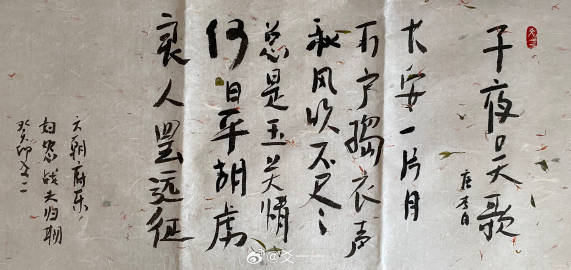 子夜吴歌
唐李白
长安一片月
万户捣衣声
秋风吹不尽
总是玉关情
何日平胡虏
良人罢远征
六朝府乐
妇思战夫归期
癸卯